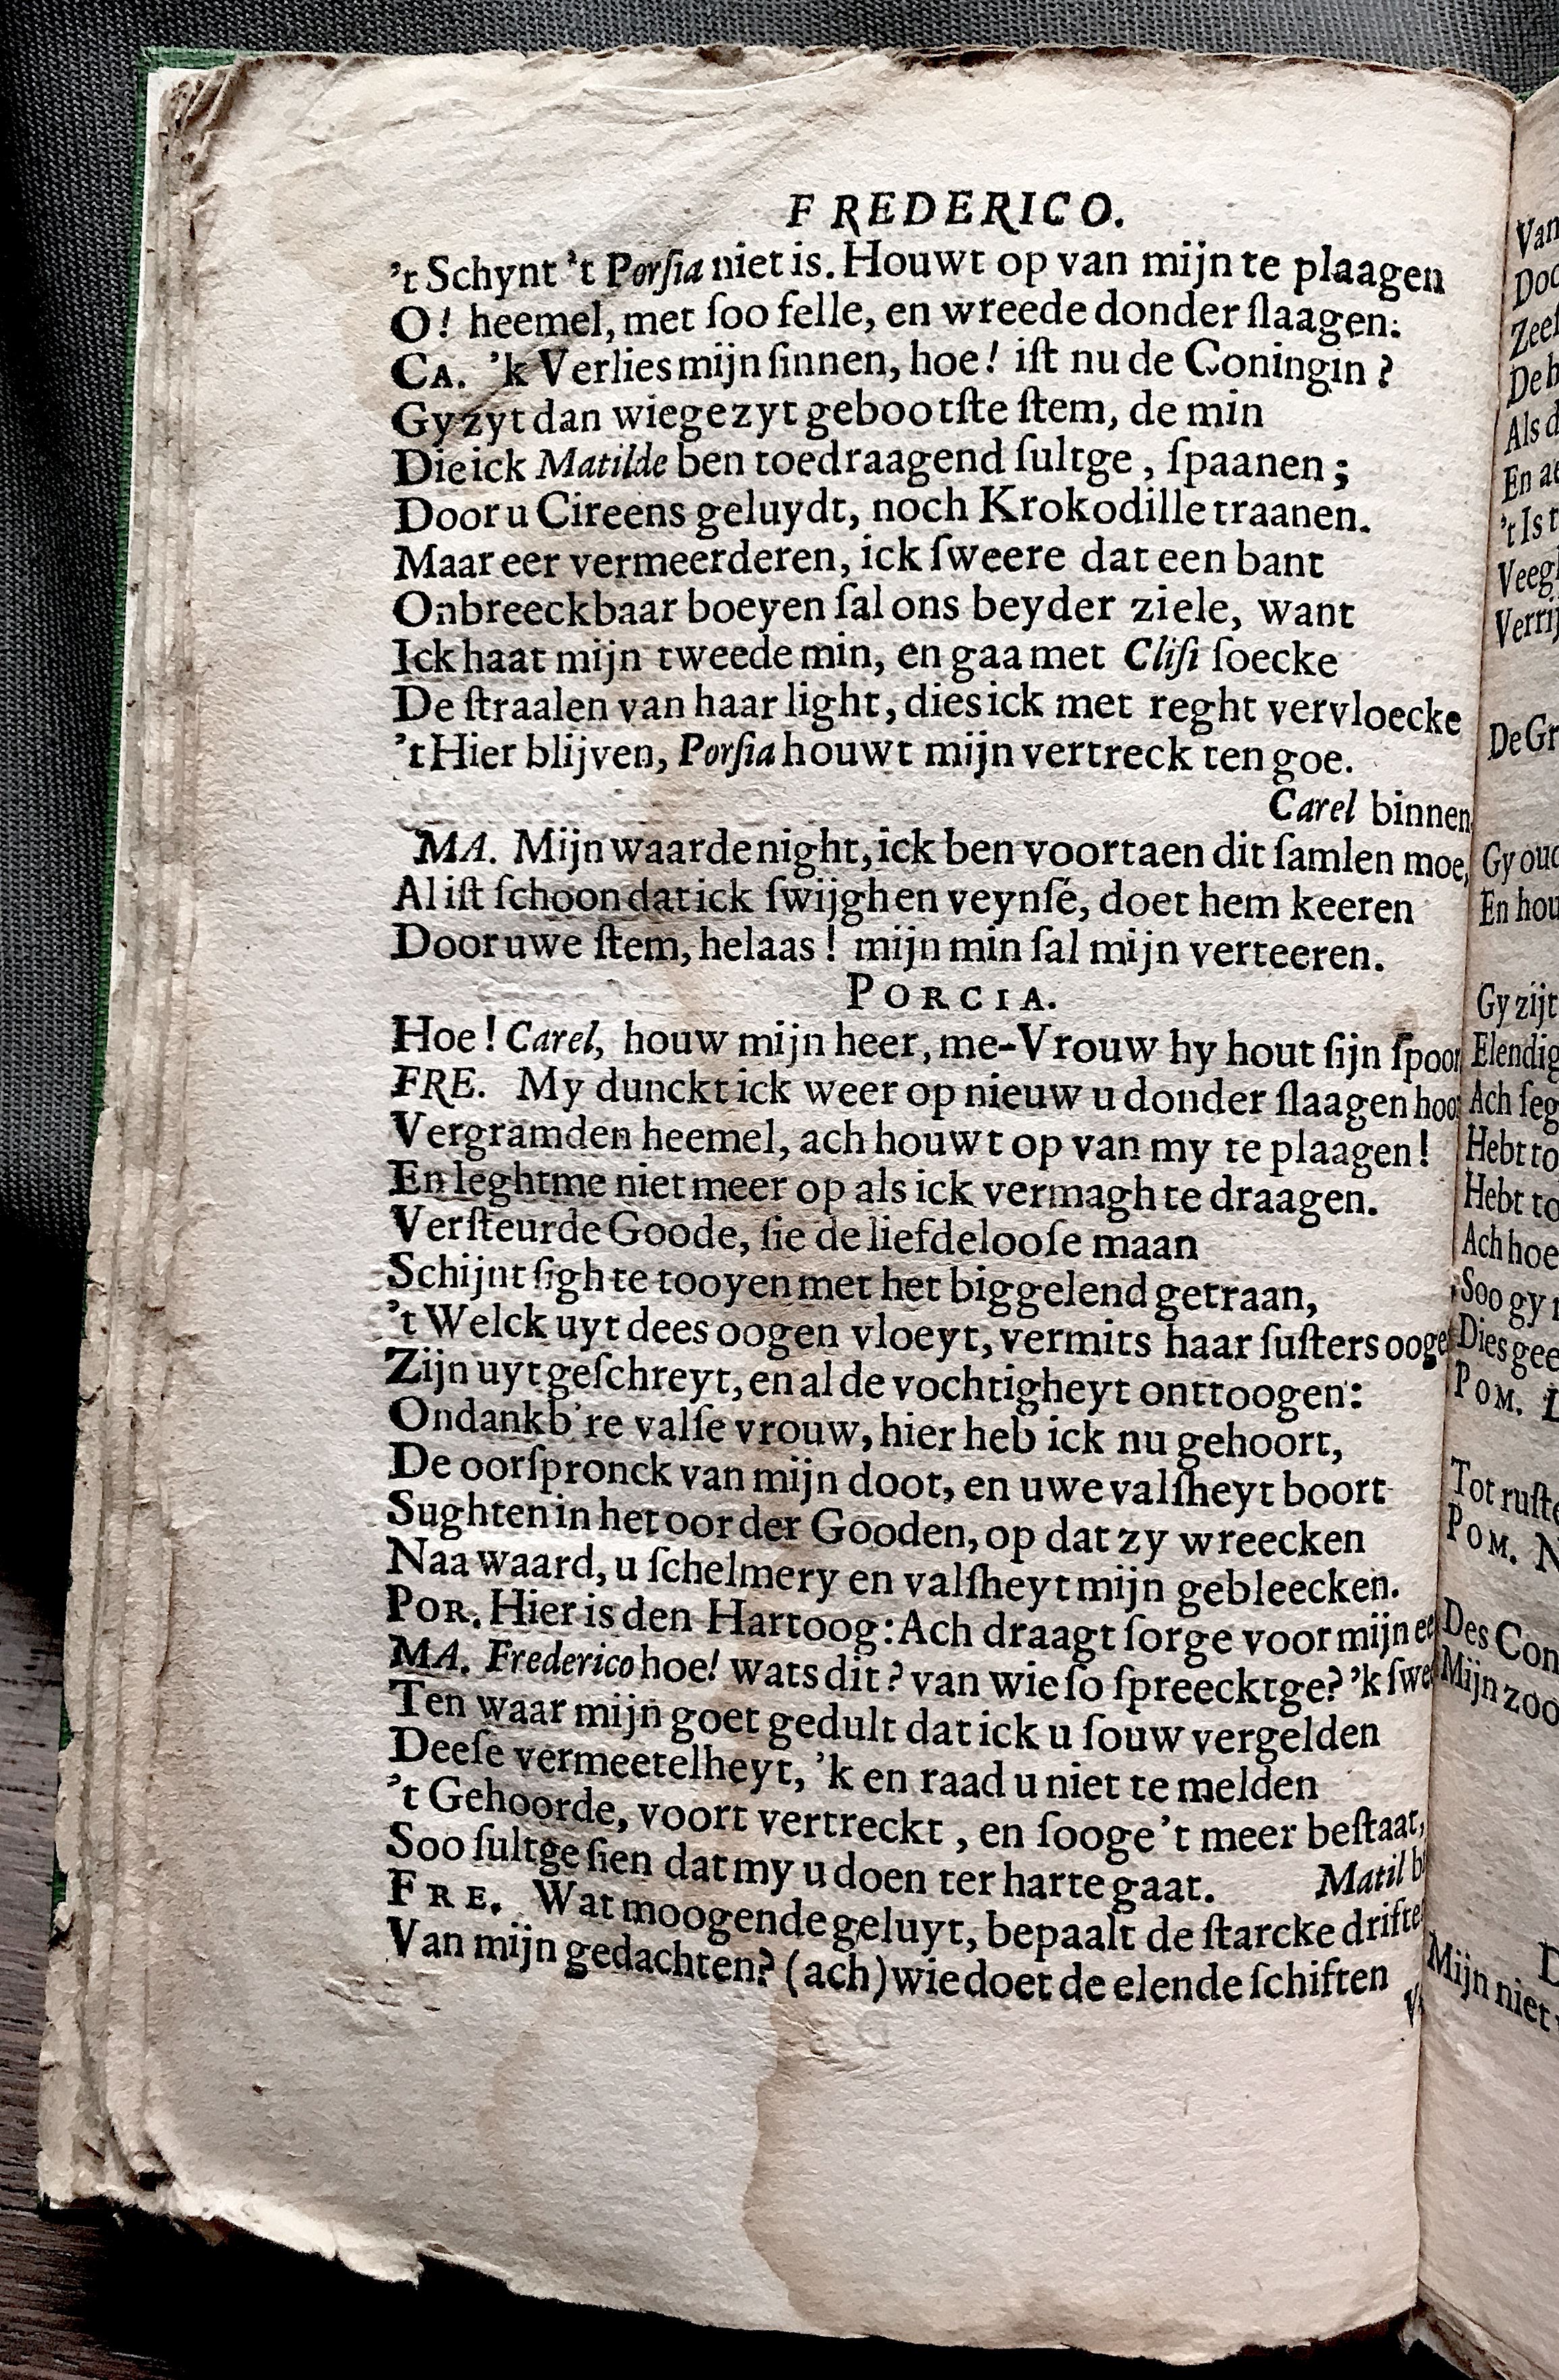 FREDERICO.
't Schynt 't Porſia niet is. Houwt op van mijn te plaagen
O! heemel, met ſoo felle, en wreede donder ſlaagen.
CA. 'k Verlies mijn ſinnen, hoe! iſt nu de Coningin?
Gy zyt dan wie ge zyt gebootſte ſtem, de min
Die ick Matilde ben toedraagend ſultge, ſpaanen;
Door u Cireens geluydt, noch Krokodille traanen.
Maar eer vermeerderen, ick ſweere dat een bant
Onbreeckbaar boeyen ſal ons beyder ziele, want
Ick haat mijn tweede min, en gaa met Cliſi ſoecke
De ſtraalen van haar light, dies ick met reght vervloecke
't Hier blijven, Porſia houwt mijn vertreck ten goe.
Carel binnen
MA. Mijn waarde night, ick ben voortaen dit ſamlen moe,
Al iſt ſchoon dat ick ſwijghen veynſé, doet hem keeren
Door uwe ſtem, helaas! mijn min ſal mijn verteeren.
PORCIA.
Hoe! Carel, houw mijn heer, me-Vrouw hy hout ſijn ſpoor
FRE. My dunckt ick weer op nieuw u donder ſlaagen hoo
Vergramden heemel, ach houwt op van my te plaagen!
En leght me niet meer op als ick vermagh te draagen.
Verſteurde Goode, ſie de liefdelooſe maan
Schijnt ſigh te tooyen met het biggelend getraan,
't Welck uyt dees oogen vloeyt, vermits haar ſuſters ooge
Zijn uytgeſchreyt, en al de vochtigheyt onttoogen:
Ondankb're valſe vrouw, hier heb ick nu gehoort,
De oorſpronck van mijn doot, en uwe valſheyt boort
Sughten in het oor der Gooden, op dat zy wreecken
Naa waard, u ſchelmery en valſheyt mijn gebleecken.
POR. Hier is den Hartoog: Ach draagt ſorge voor mijn ee
MA. Frederico hoe! wats dit? van wie ſo ſpreecktge? 'k ſwe
Ten waar mijn goet gedult dat ick u ſouw vergelden
Deeſe vermeetelheyt, 'k en raad u niet te melden
't Gehoorde, voort vertreckt, en ſooge 't meer beſtaat,
Soo ſultge ſien dat my u doen ter harte gaat. Matil b
FRE. Wat moogende geluyt, bepaalt de ſtarcke drifte
Van mijn gedachten? (ach) wie doet de elende ſchiften
Van
Doo
Zeeſ
De h
Als d
En ae
't Is t
Veeg
Verrij
De Gr
Gy oud
En hou
Gy zijt
Elendig
Ach ſeg
Hebt to
Hebt to
Ach hoe
Soo gy
Dies gee
POM.
Tot ruſte
POM. N
Des Con
Mijn zoo
D
Mijn niet